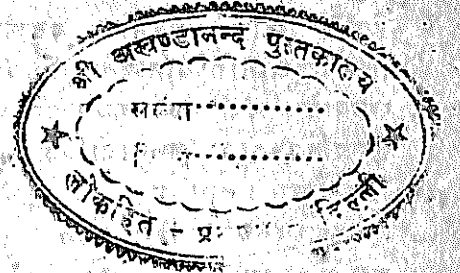 श्री अखण्डानन्द पुस्तकालय
संख्या
लोकहित -